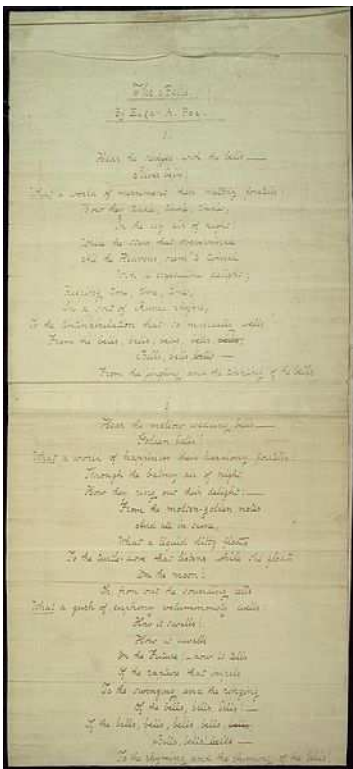 The Bells.
By Edgar A. Poe.
1.
Hear the sledges with the bells —
Silver bells!
What a world of merriment their melody foretells!
How they tinkle, tinkle, tinkle,
In the icy air of night!
While the stars that oversprinkle
All the Heavens, seem to twinkle
With a crystalline delight;
Keeping time, time, time,
In a sort of Runic rhyme,
To the tintinnabulation that so musically wells
From the bells, bells, bells, bells,
Bells, bells, bells —
From the jingling and the tinkling of the bells.
2
Hear the mellow wedding bells —
Golden bells!
What a world of happiness their harmony foretells!
Through the balmy air of night
How they ring out their delight! —
From the molten-golden notes
And all in tune,
What a liquid ditty floats
To the turtle-dove that listens while she gloats
On the moon!
Oh, from out the sounding cells
What a gush of euphony voluminously wells!
How it swells!
How it dwells
On the Future! — how it tells
Of the rapture that impels
To the swinging and the ringing
Of the bells, bells, bells! —
Of the bells, bells, bells, bells,
Bells, bells, bells —
To the rhyming and the chiming of the bells!